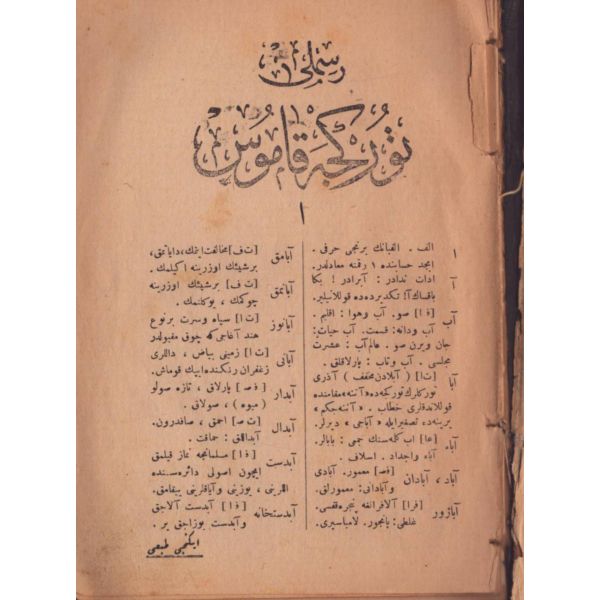 رسملی
تورکجه قاموس
ا
ا الف . الفبانك برنجی حرفی .
ابجد حسابنده ١ رقمنه معادلدر.
آ ادات ندادر : آبرادر ! بكا
باقساك آ! تكدیرده ده قوللانیلیر.
آب [فا] صو. آب وهوا : اقلیم .
آب ودانه: قسمت. آب حیات:
جان ویرن صو . عالم آب : عشرت
مجلسی . آب وتاب : پارلاقلق .
آبا [تا] (آبلادن مخفف) آذری
توركلرك توركجه ده «آننه» مقامنده
قوللاندقلری خطاب . «آننه جكم»
یرینه ده تصغیرایله «آباجی» دیرلر.
آباء [عا] اب كلمه سنك جمعی : بابالر.
آباء واجداد . اسلاف .
آباد ، آبادان [فص] معمور. آبادی
وآبادانی: معمورلق.
آباژور [فرا] آلافرانغه پنجره قفسی.
غلطی: پانجور. لامباسیری.
آبامق [ت ف] مخالفت ایتمك، دایاتمق،
برشیئك اوزرینه اكیلمك.
آبانمق [ت ف] برشیئك اوزرینه
چوكمك ، یوكلنمك .
آبانوز [تا] سیاه وسرت برنوع
هند آغاجی كه چوق مقبولدر
آبانی [تا] زمینی بیاض ، داللری
زعفران رنكنده ایپك قوماش.
آبدار [فص] پارلاق ، تازه صولو
(میوه) ، صولاق .
آبدال [ت ص] احمق ، صافدرون.
آبداللق : حماقت .
آبدست [فا] مسلمانجه نماز قیلمق
ایچون اصولی دائره سنده
اللرینی ، یوزینی وآیاقلرینی ییقامق.
آبدستخانه [فا] آبدست آلاجق
وآبدست بوزاجق یر .
ایكنجی طبعی